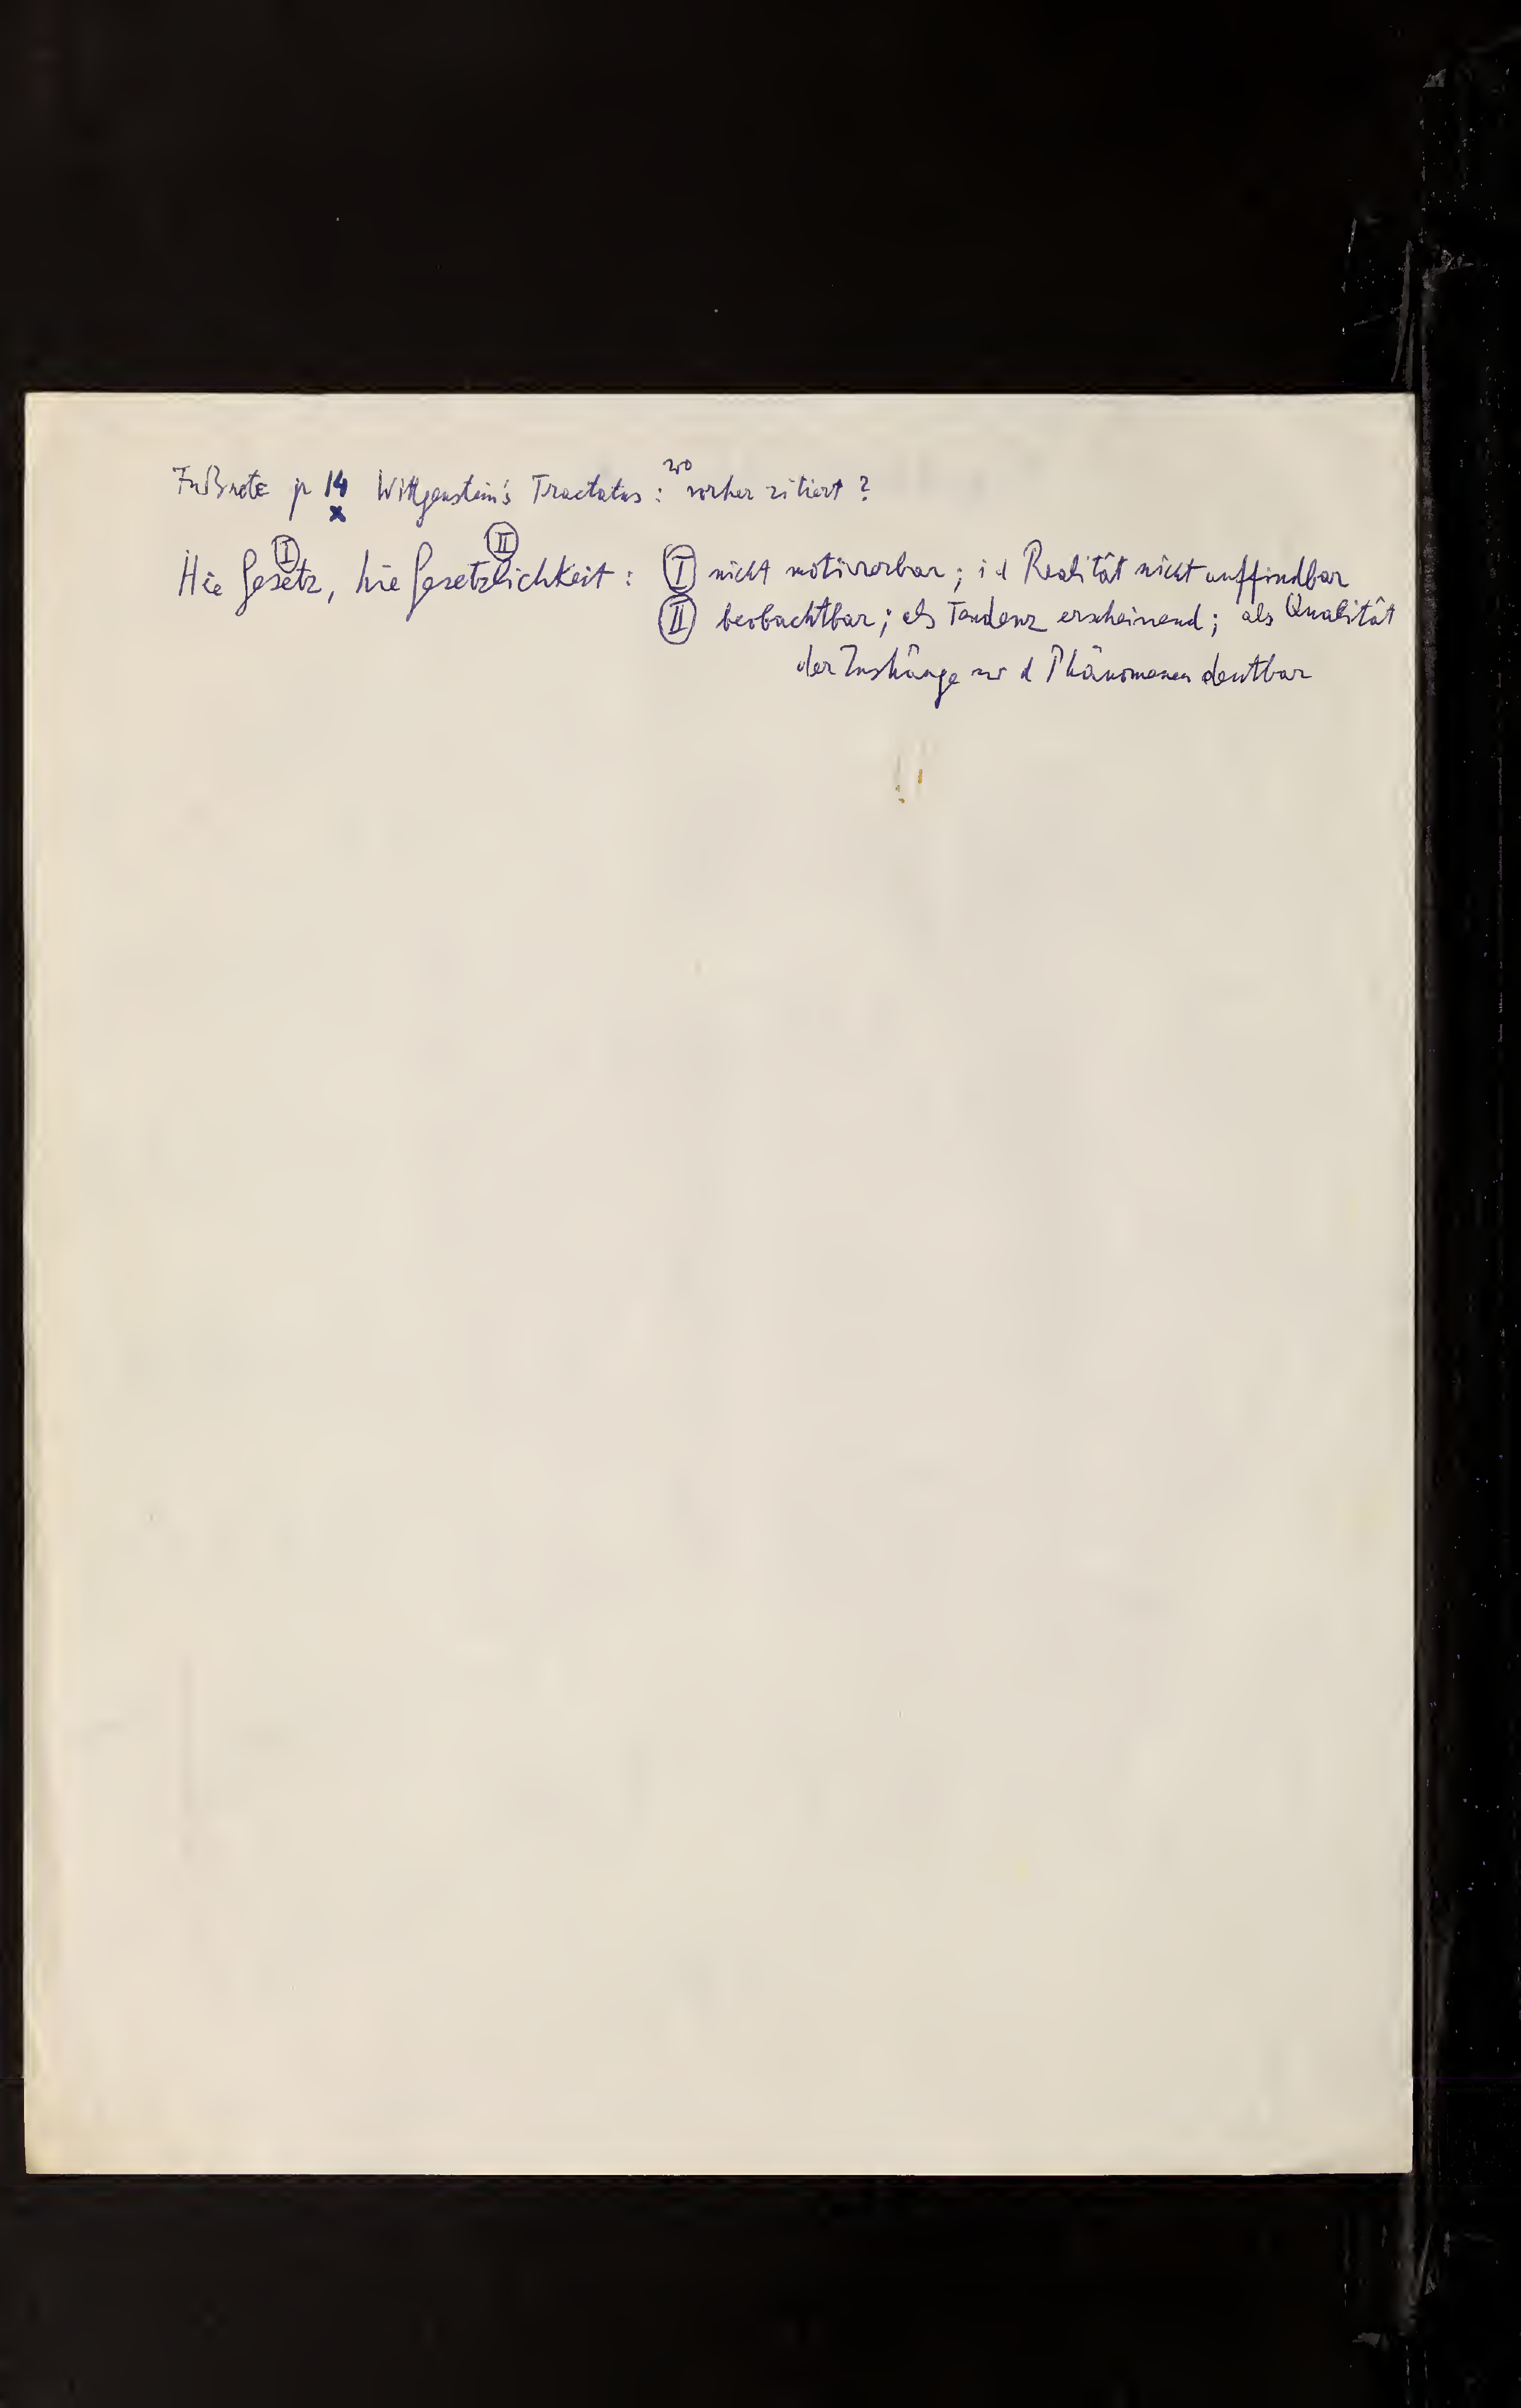 Fußnote p 14 Wittgenstein's Tractatus : wo vorher zitiert ?
x
Hie Gesetz, hie Gesetzlichkeit : I nicht motivierbar ; i d Realität nicht auffindbar
I II
II beobachtbar ; als Tendenz erscheinend ; als Qualität
der Zushänge zw d Phänomenen deutbar